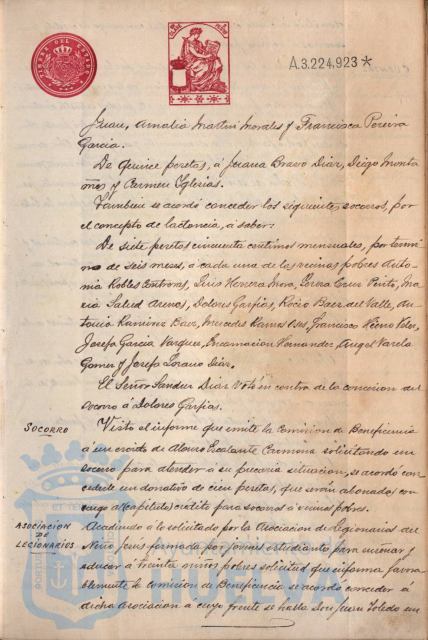 A.3.224.923*
Juan, Amalia Martin Morales y Francisca Pereira
Garcia.
De quince pesetas, á Juana Bravo Diaz, Diego Monta
ños y Carmen Yglesias.
Tambien se acordó conceder los siguientes socorros, por
el concepto de lactancia, á saber:
De siete pesetas cincuenta centimos mensuales, por termi
no de seis meses, á cada una de las vecinas pobres Anto
nia Robles Contreras, Luis Herrera Mora, Cruz Ma
ria Salud Arenas, Dolores Garfias, Rocio Baez del Valle, An
tonio Ramirez Baez, Mercedes Ramos Francisco
Josefa Garcia Vazquez, Encarnacion Hernandez, Angel Varela
Gomez y Josefa Lozano Diaz.
El Señor Sanchez Diaz votó en contra de la concesion del
socorro á Dolores Garfias.
SOCORRO
Visto el informe que emite la Comision de Beneficencia
á un escrito de Alonso Escalante Carmona solicitando un
socorro para atender á su precaria situacion, se acordó con
cederle un donativo de cien pesetas, que serán abonadas con
cargo al capitulo crédito para socorros á vecinos pobres.
ASOCIACION
DE
LEGIONARIOS
Accediendo á lo solicitado por la Asociacion de Legionarios del
Niño Jesus formada por jovenes estudiantes para enseñar y
educar á treinta niños pobres solicitud que informa favora
blemente la Comision de Beneficencia se acordó conceder á
dicha Asociacion á cuyo frente se halla Don Juan Toledo un